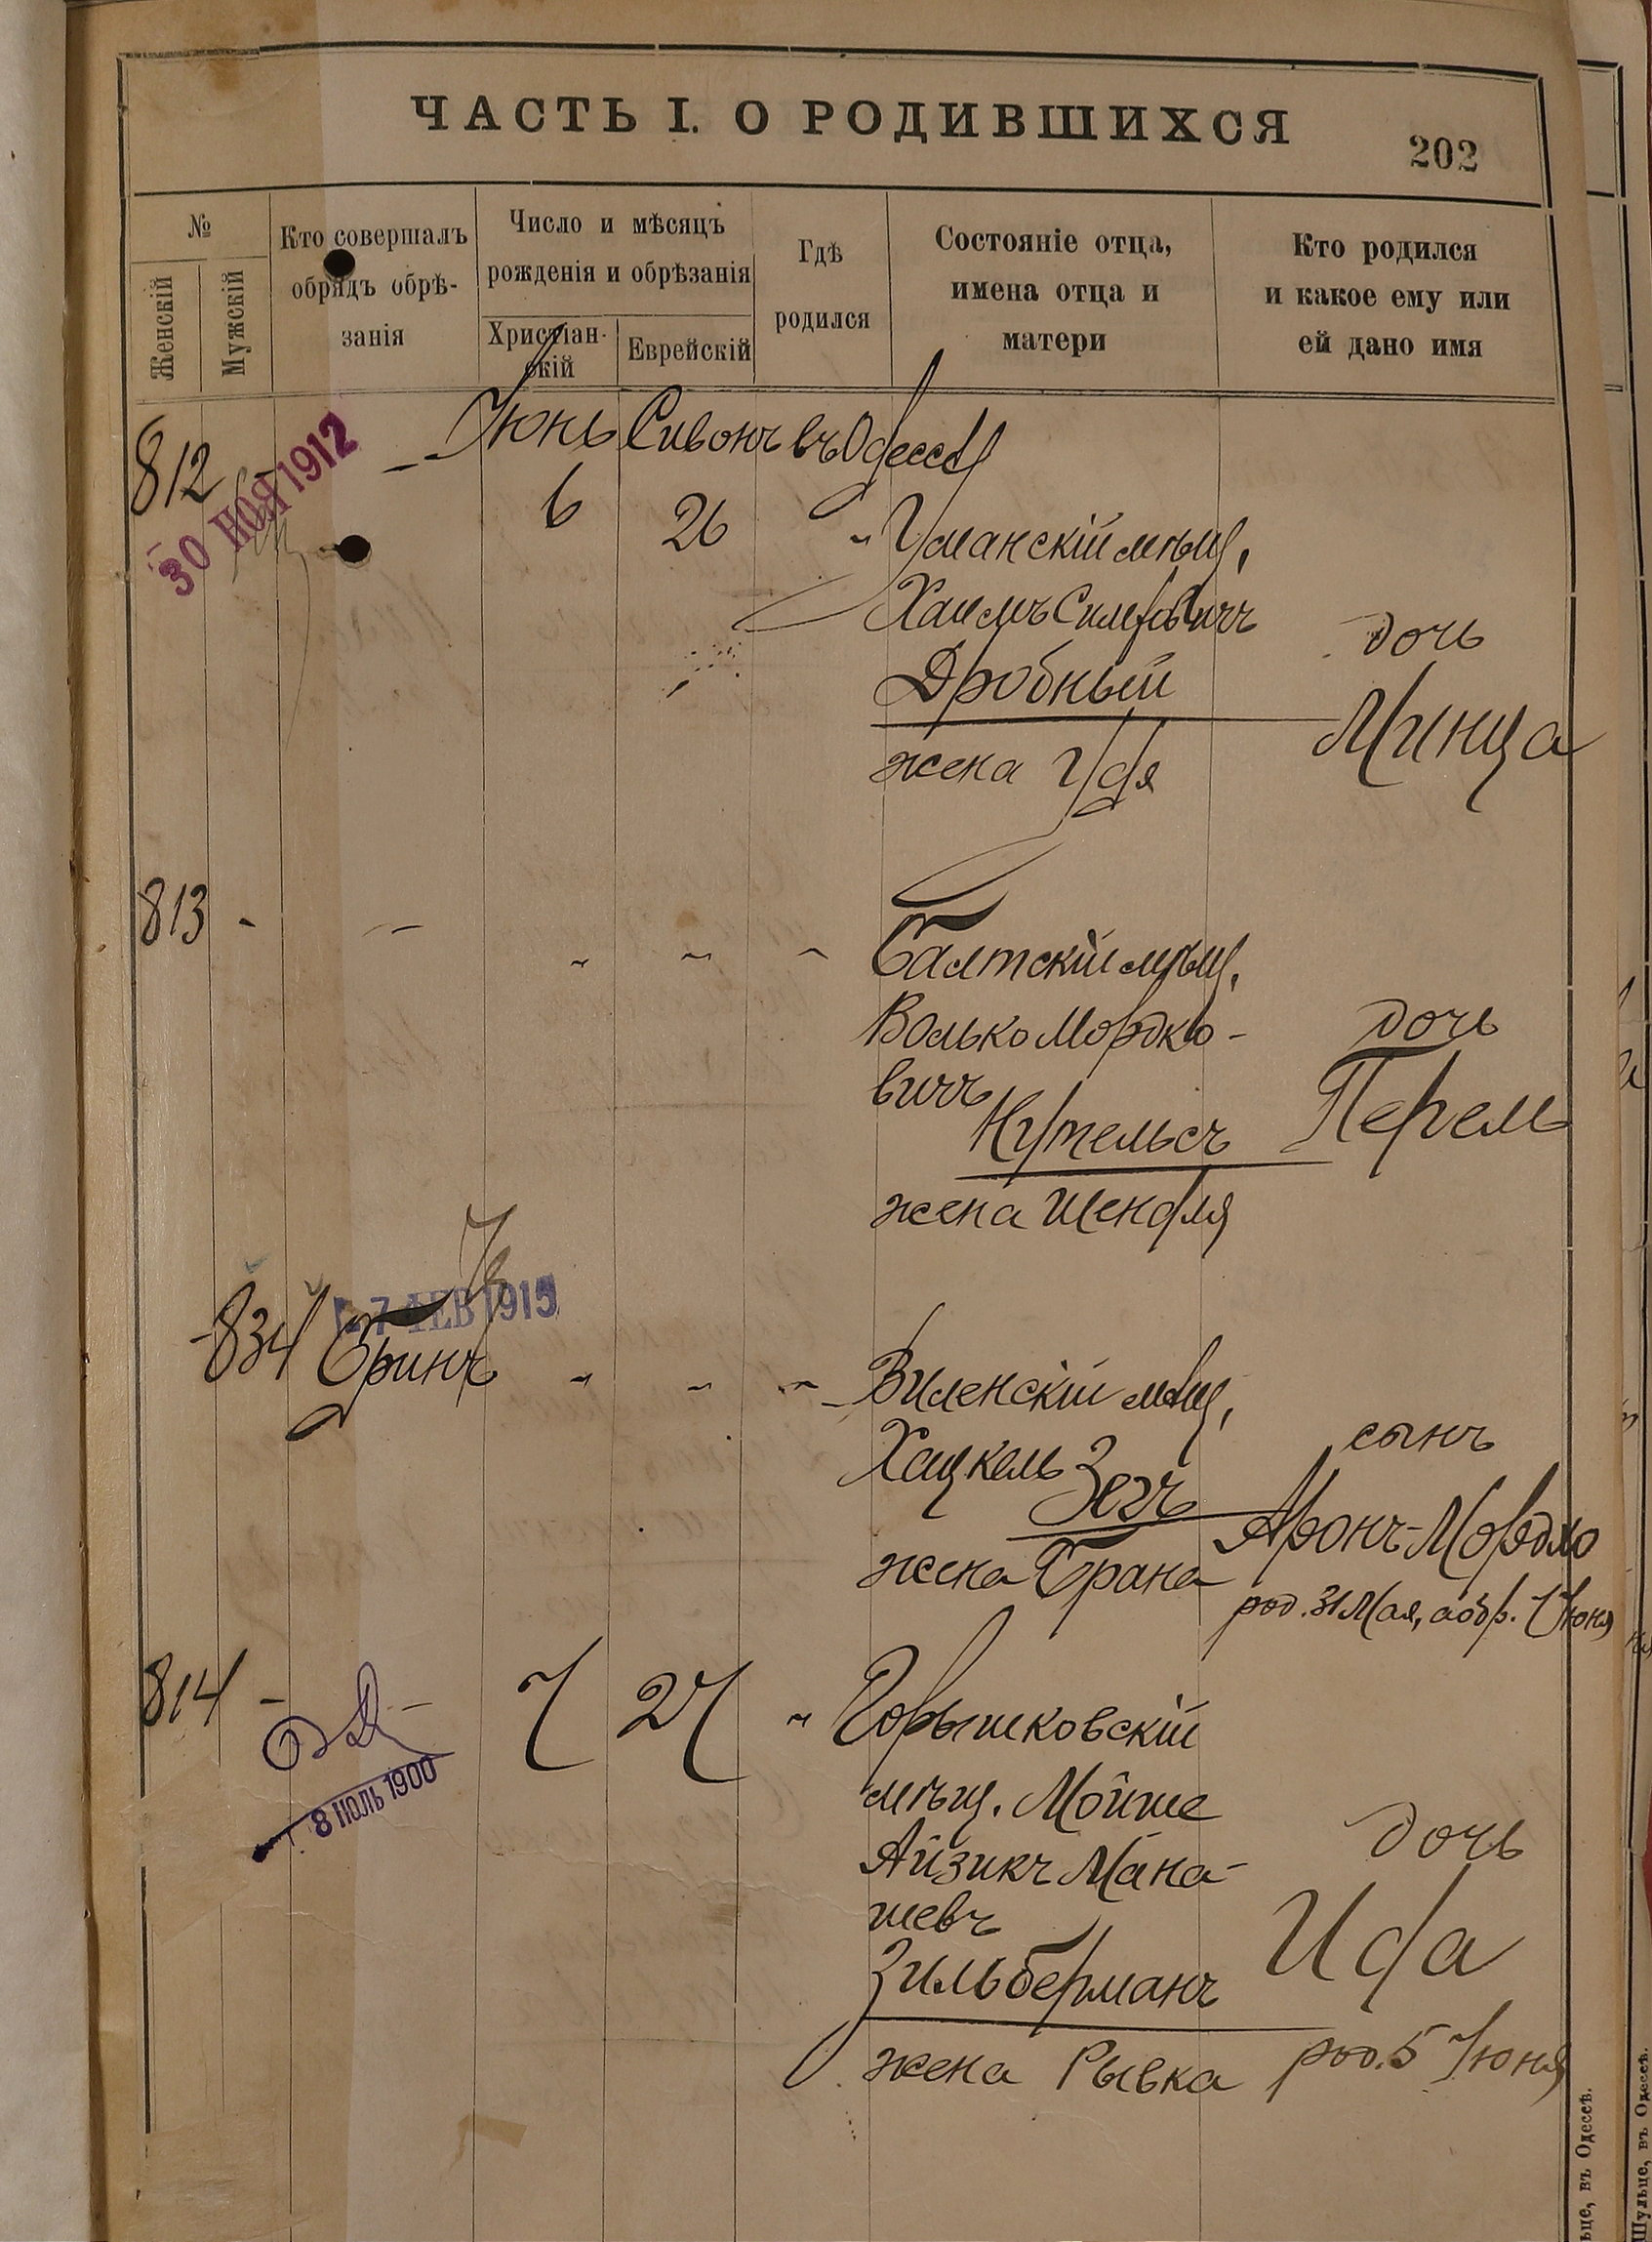 ЧАСТЬ I. О РОДИВШИХСЯ
202
№
Женскій
Мужскій
Кто совершалъ
обрядъ обрѣ-
занія
Число и мѣсяцъ
рожденія и обрѣзанія
Христіан-
скій
Еврейскій
Гдѣ
родился
Состояніе отца,
имена отца и
матери
Кто родился
и какое ему или
ей дано имя
812 - -- Іюнь Сивонъ въ Одессѣ
30 НОЯ 1912
6 26 " Уманскій мѣщ.
Хаимъ
Дробный
жена Удя
дочь
Минца
813 - -- " " " Балтскій мѣщ.
Волько Мордко-
вичъ
Нутельсъ
жена Шендля
дочь
Перель
7 ФЕВ 1915
-834 Бринъ " " " Виленскій мѣщ.
Хацкель
Зегъ
жена Брана
сынъ
Аронъ-Мордко
род. 31 Мая, а обр. 7 Іюня
814 - - 7 27 " Горышковскій
8 ІЮЛЬ 1900
мѣщ. Мойше
Айзикъ Мана-
шевъ
Зильберманъ
жена Рывка
дочь
Ида
род. 5 Іюня
ьце, въ Одессѣ.
Шульце, въ Одессѣ.